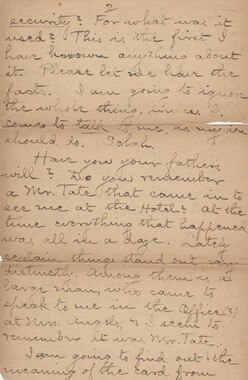 2
security? For what was it
used? This is the first I
have known anything about
it. Please let me have the
facts. I am going to ignore
the whole thing, unless
comes to talk to me, as
should do.
Have you your father's
will? Do you remember
a Mr. Tate, that came in to
see me at the Hotel? At the
time everything that happened
was all in a daze. Lately
certain things stand out very
distinctly. Among them is a
large man, who came to
speak to me in the Office
at Mrs. Angels, & I seem to
remember it was Mr. Tate.
I am going to find out the
meaning of the card from